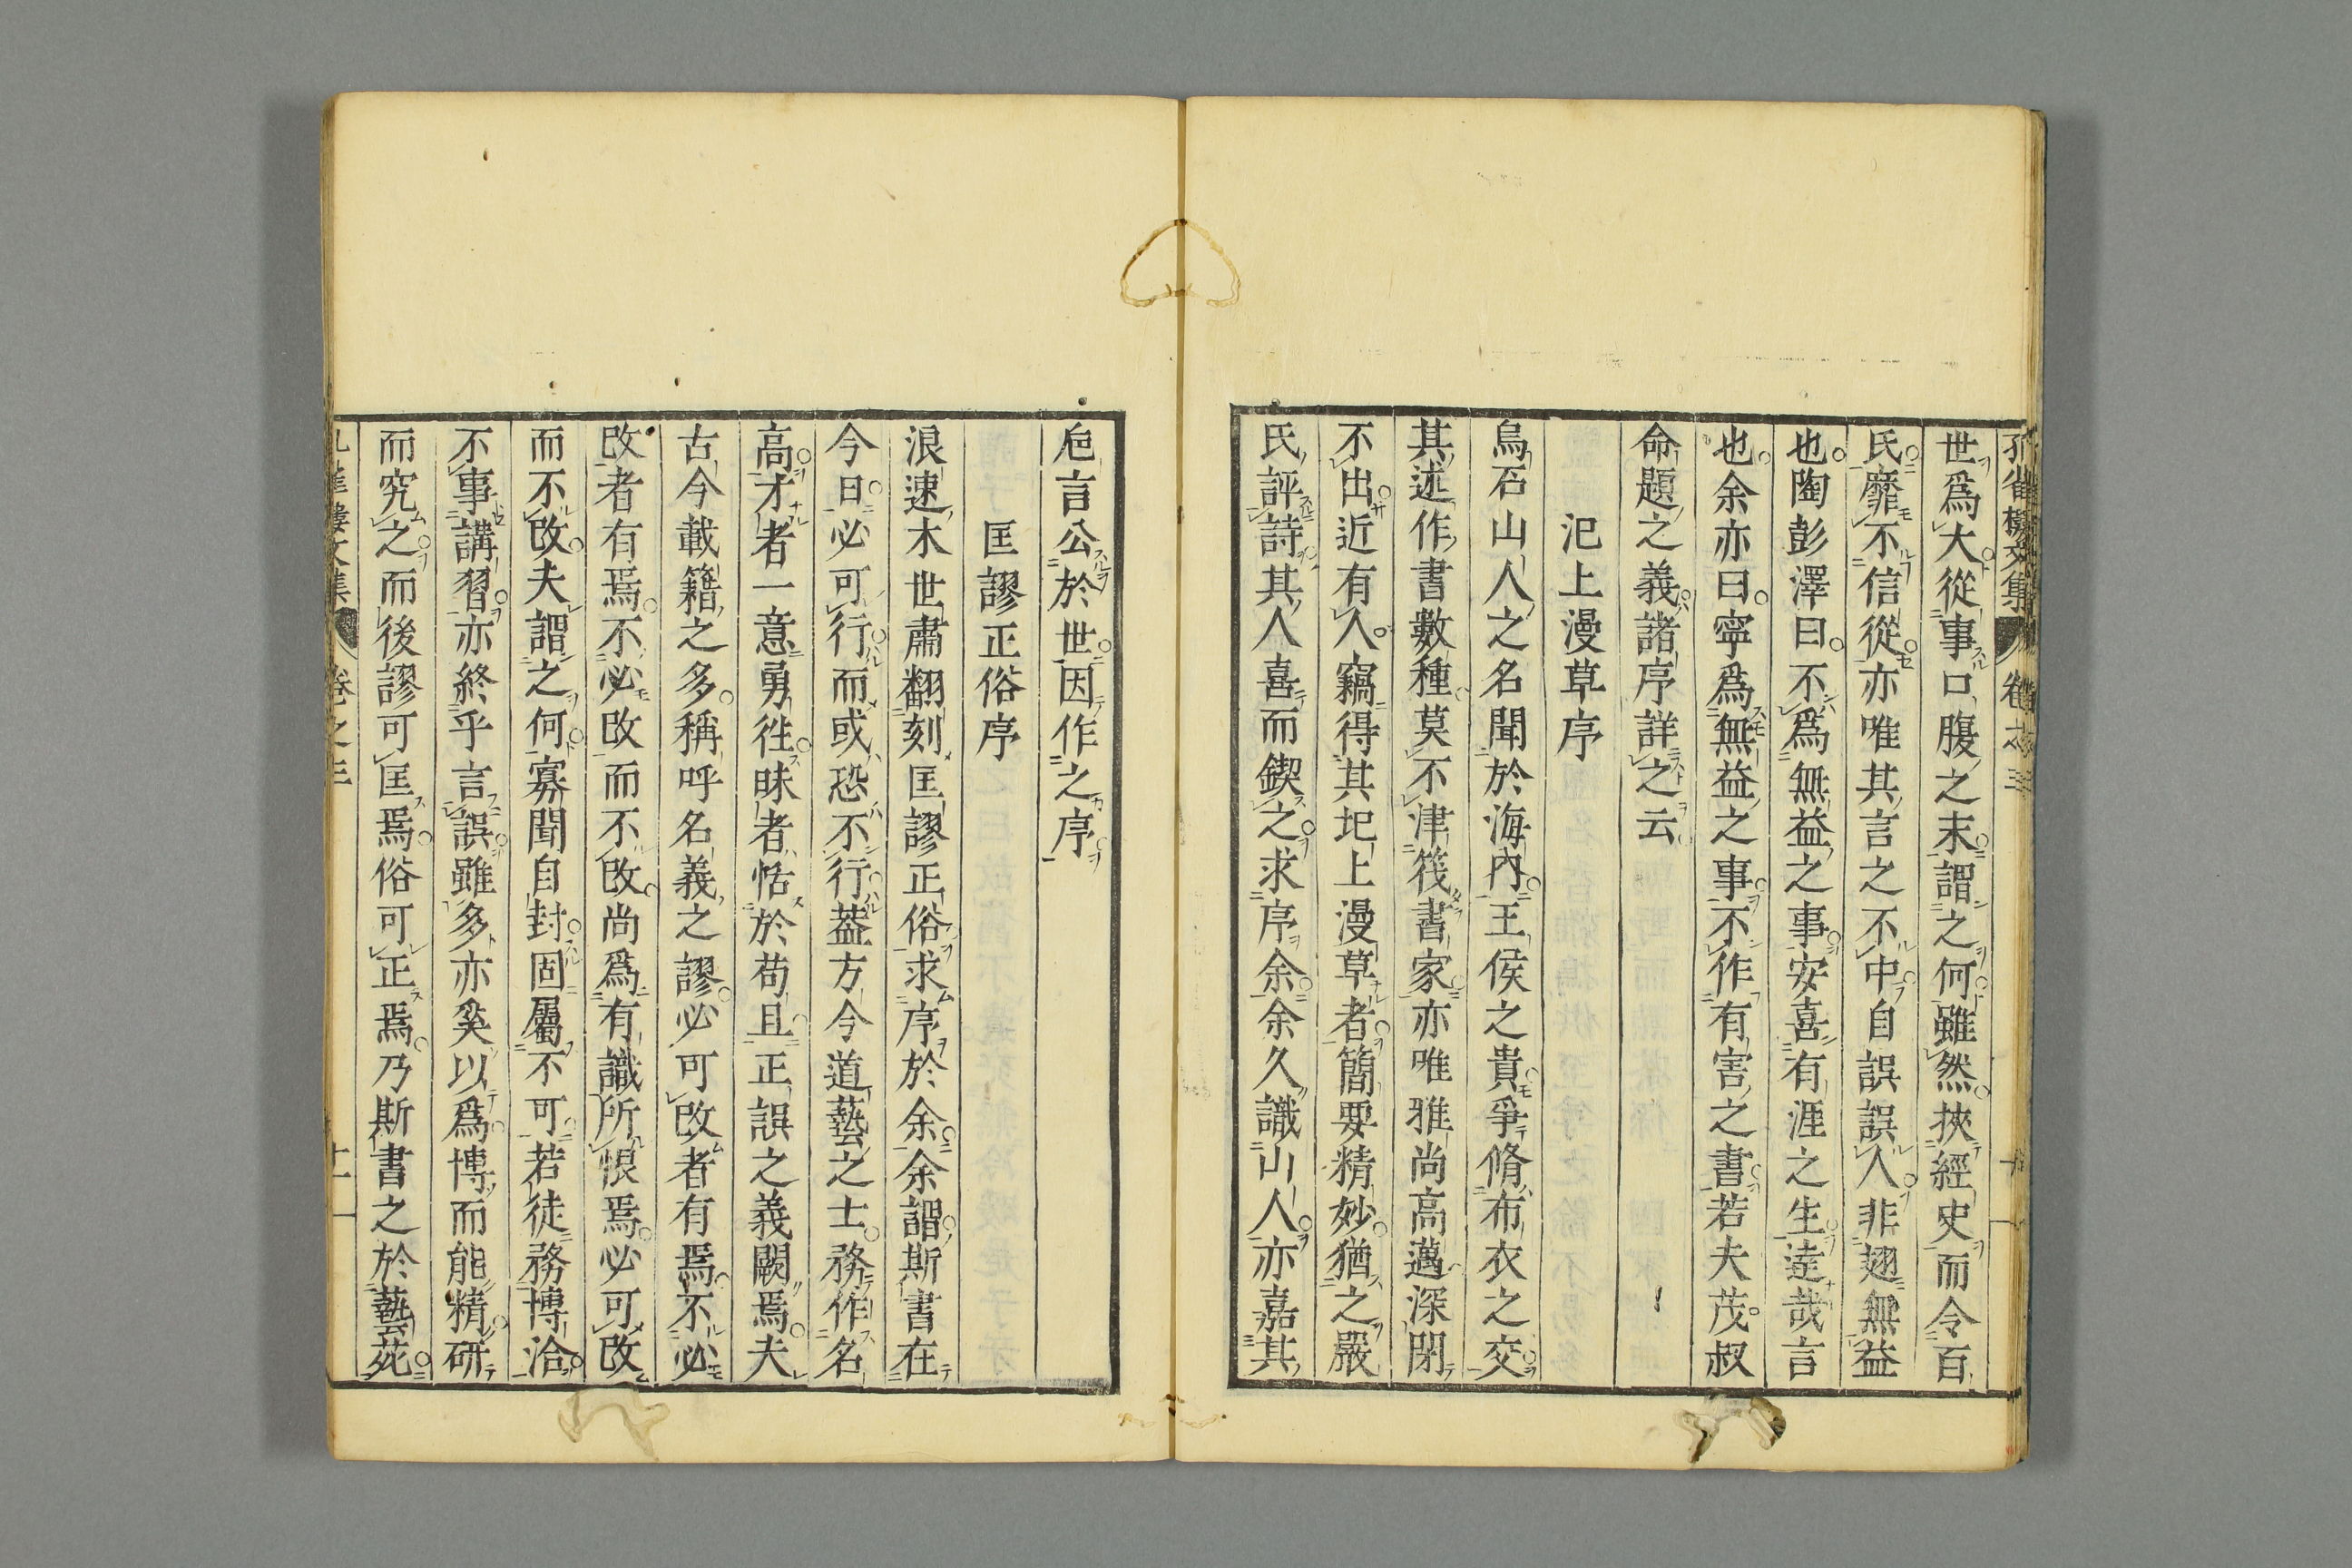 孔雀樓文集 卷之三
世爲大從事口腹之末謂之何雖然挾經史而令百
氏靡不信從亦唯其言之不中自誤誤人非翅無益
也陶彭澤曰不爲無益之事安喜有涯之生達哉言
也余亦曰寧爲無益之事不作有害之書若夫茂叔
命題之義諸序詳之云
圯上漫草序
烏石山人之名聞於海內王侯之貴爭脩布衣之交
其述作書數種莫不津筏書家亦唯雅尚高邁深閉
不出近有人竊得其圯上漫草者簡要精妙猶之嚴
氏評詩其人喜而鍥之求序余余久識山人亦嘉其
巵言公於世因作之序
匡謬正俗序
浪速木世肅翻刻匡謬正俗求序於余余謂斯書在
今日必可行而或恐不行葢方今道藝之士務作名
高才者一意勇徃昧者恬於苟且正誤之義闕焉夫
古今載籍之多稱呼名義之謬必可改者有焉不必
改者有焉不必改而不改尚爲有識所恨焉必可改
而不改夫謂之何寡聞自封固屬不可若徒務博洽
不事講習亦終乎言誤雖多亦奚以爲博而能精研
而究之而後謬可匡焉俗可正焉乃斯書之於藝苑
孔雀樓文集 卷之三 十一